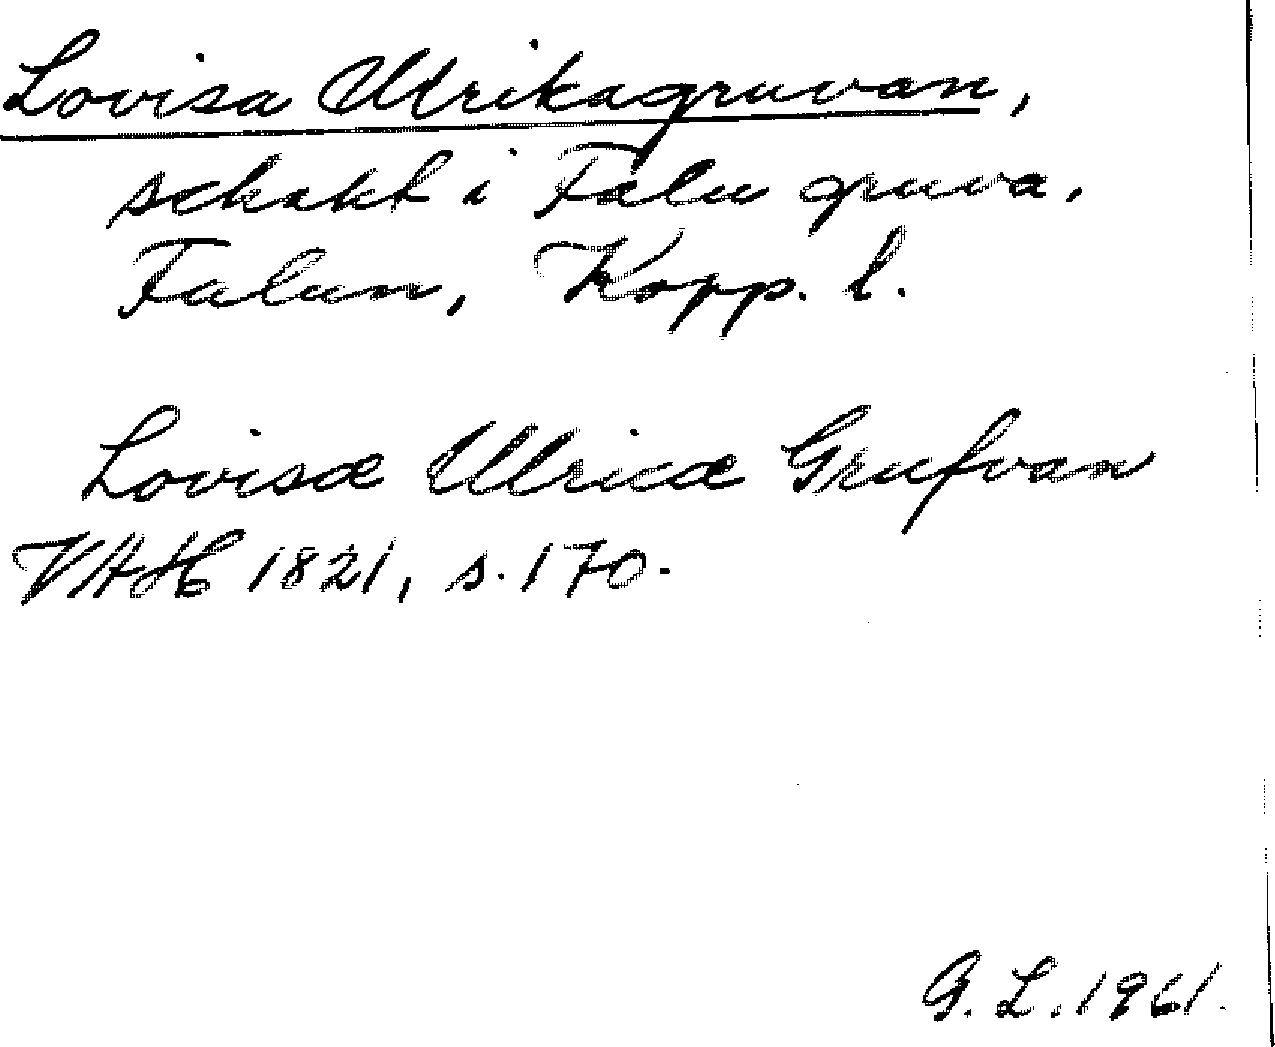 Lovisa Ulrikagruvan,
schakt i Falu gruva.
Falun, Kopp. l.
Lovisæ Ulricæ Grufvan
VAH 1821, s. 170.
G. L. 1961.